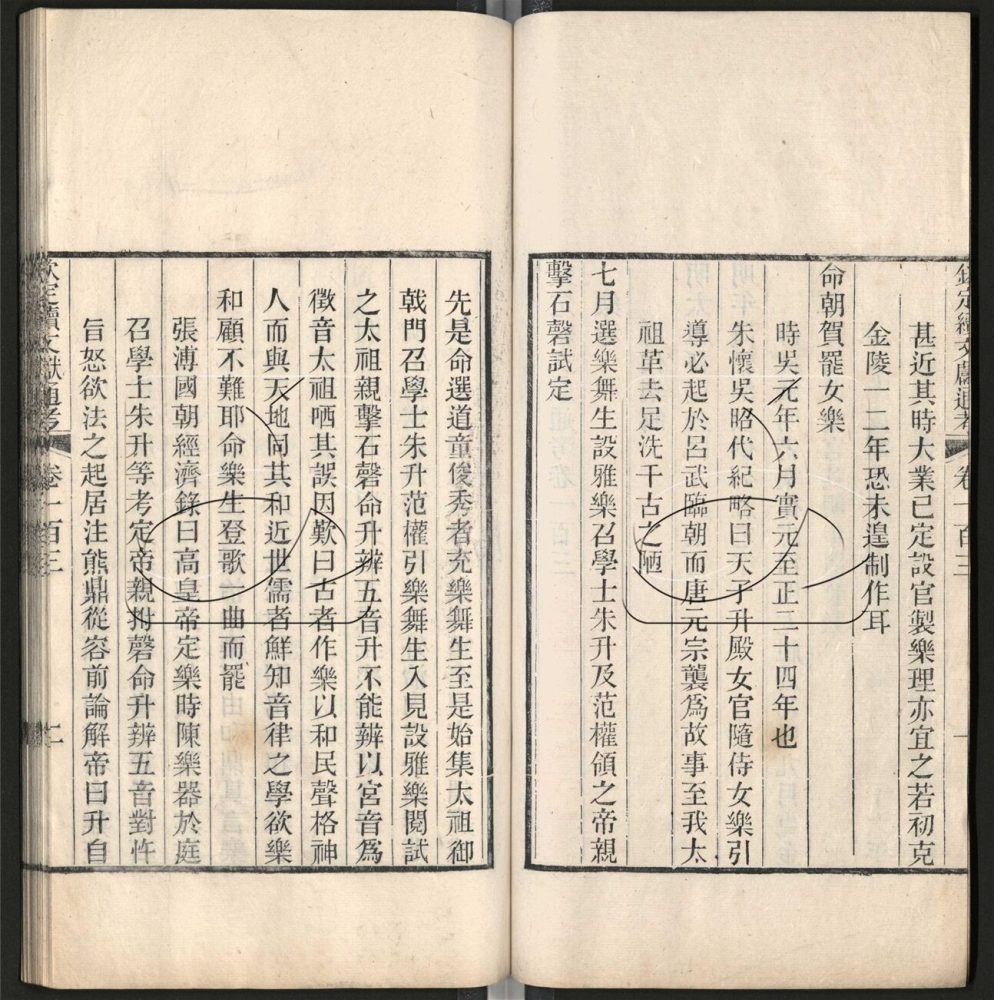 欽定續文獻通考 卷一百三
甚近其時大業已定設官製樂理亦宜之若初克
金陵一二年恐未遑制作耳
命朝賀罷女樂
時吳元年六月實元至正二十四年也
朱懷吳昭代紀略曰天子升殿女官隨侍女樂引
導必起於呂武臨朝而唐元宗襲為故事至我太
祖革去足洗千古之陋
七月選樂舞生設雅樂召學士朱升及范權領之帝親
擊石磬試定
先是命選道童俊秀者充樂舞生至是始集太祖御
戟門召學士朱升范權引樂舞生入見設雅樂閱試
之太祖親擊石磬命升辨五音升不能辨以宮音為
徵音太祖哂其誤因歎曰古者作樂以和民聲格神
人而與天地同其和近世儒者鮮知音律之學欲樂
和顧不難耶命樂生登歌一曲而罷
張溥國朝經濟錄曰高皇帝定樂時陳樂器於庭
召學士朱升等考定帝親拊磬命升辨五音對忤
旨怒欲法之起居注熊鼎從容前論解帝曰升自
欽定續文獻通考 卷一百三